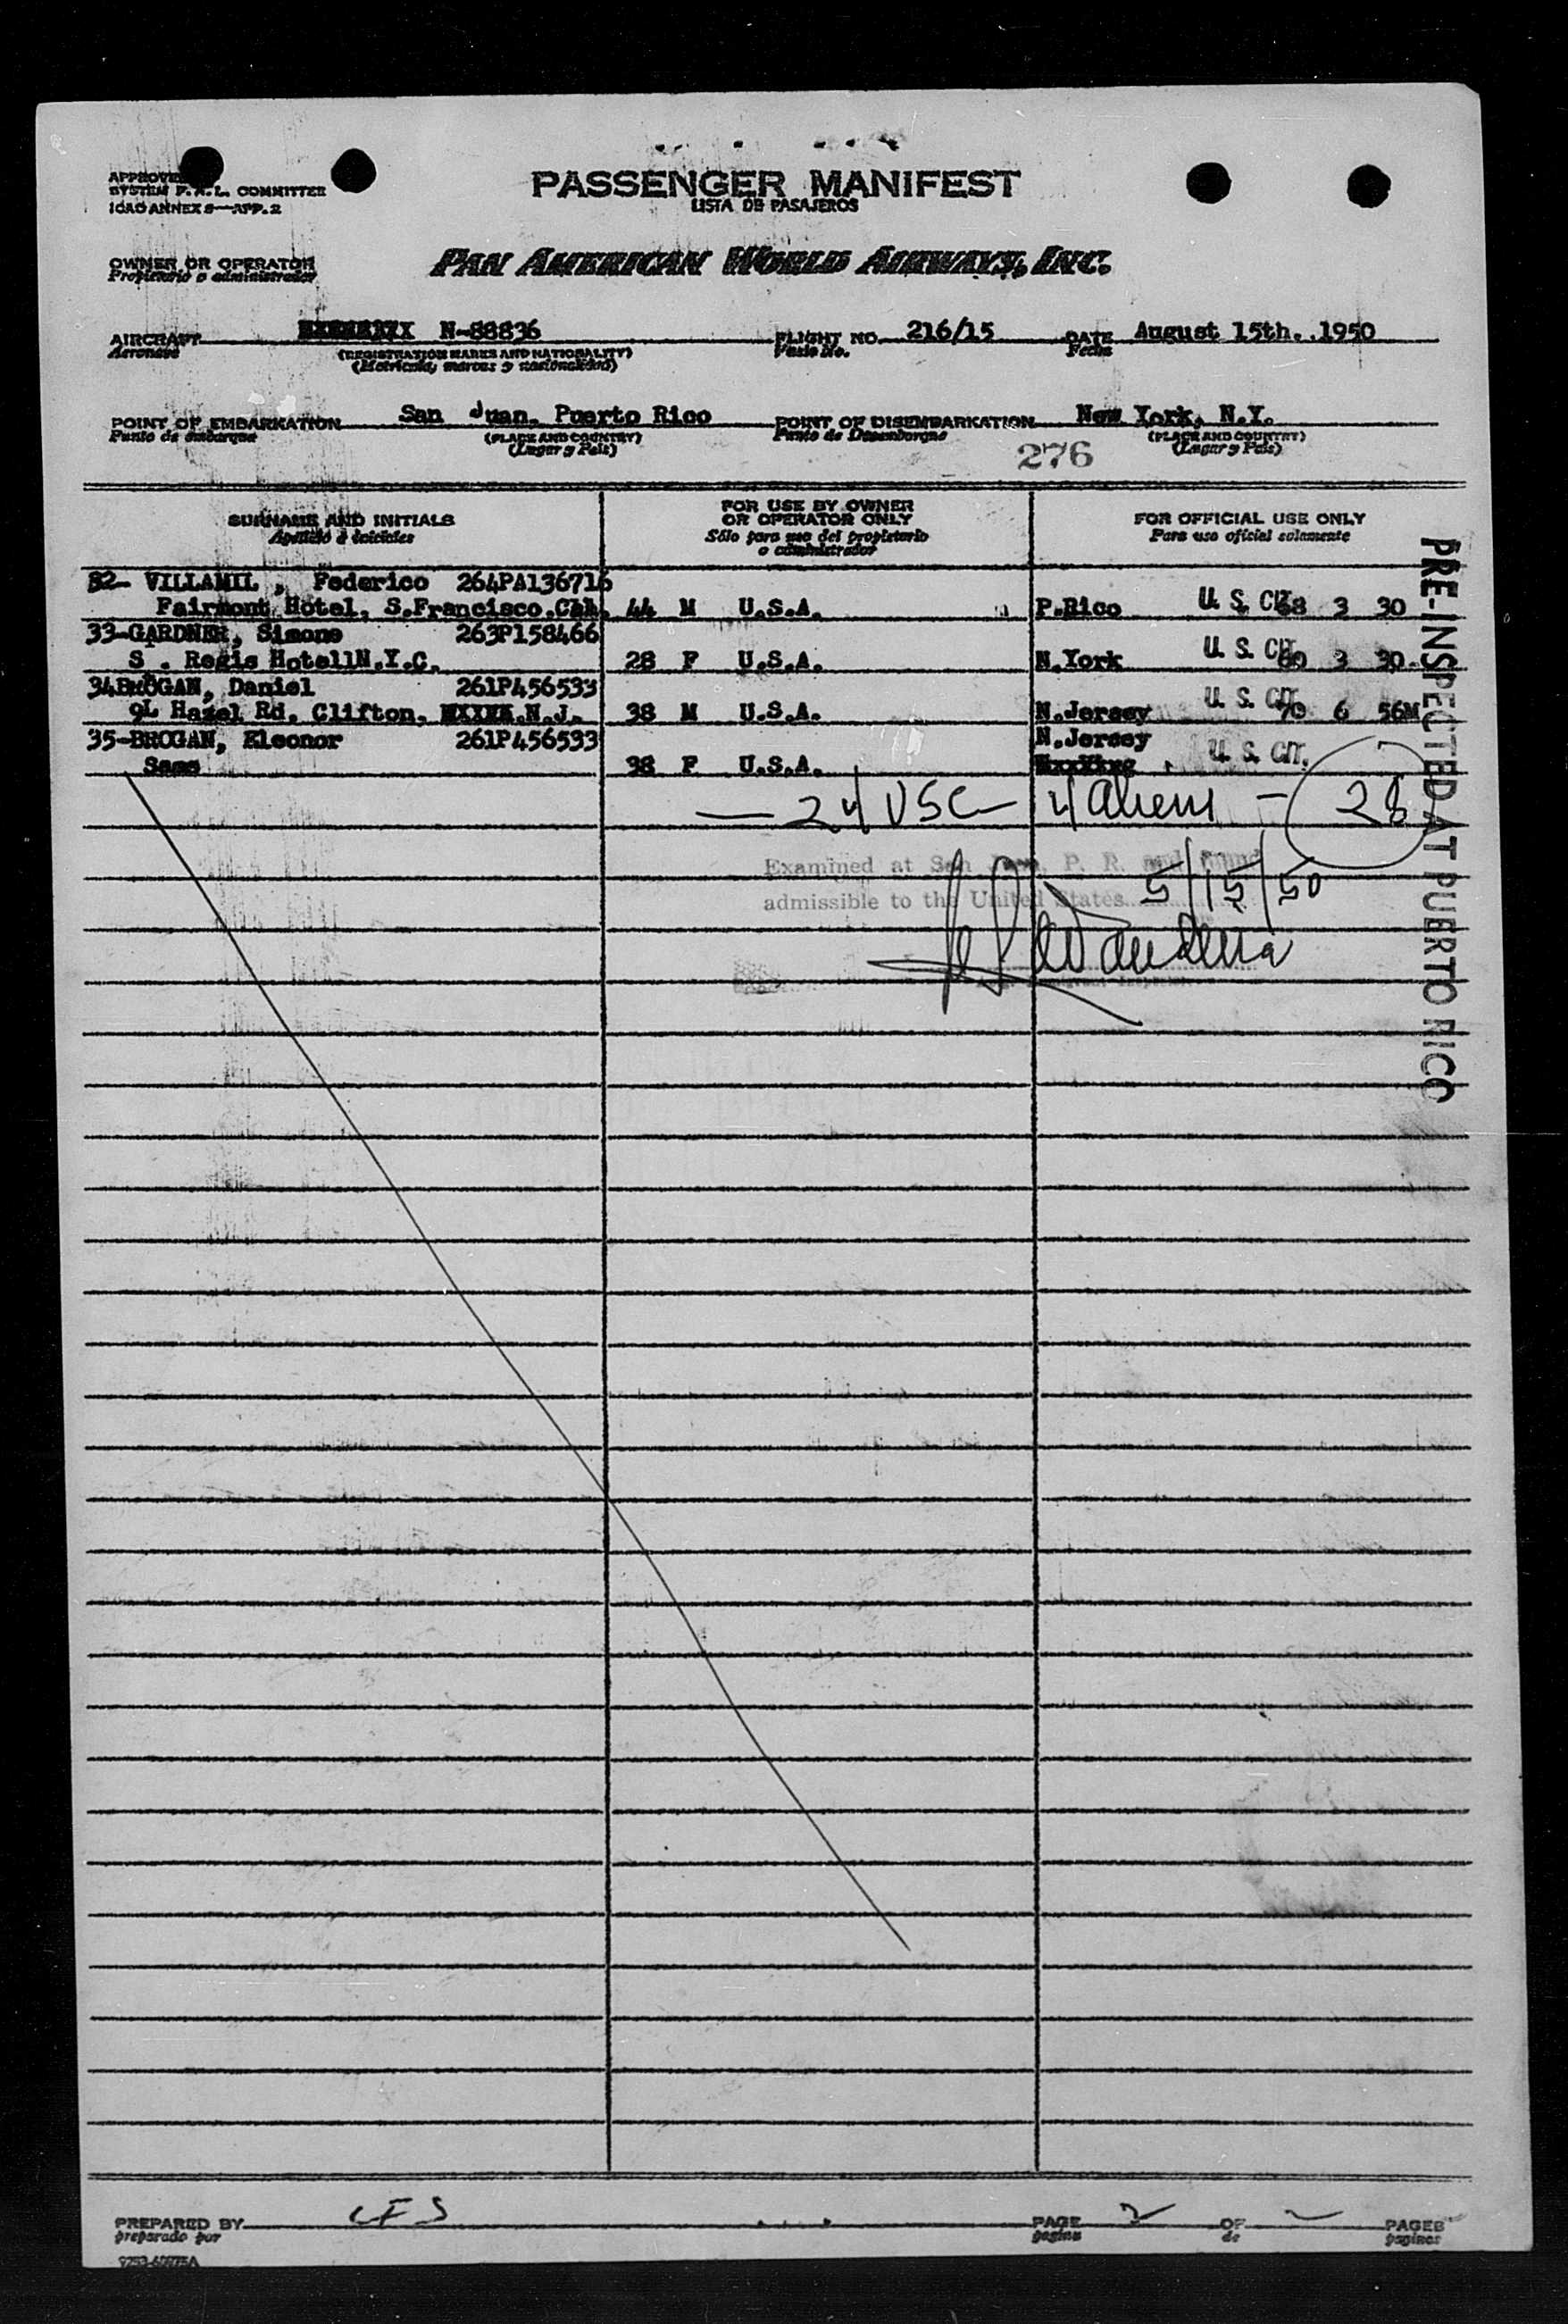 APPROVED
SYSTEM F.A.L. COMMITTEE
ICAO ANNEX 9—APP. 2
PASSENGER MANIFEST
LISTA DE PASAJEROS
OWNER OR OPERATOR
Propietario o administrador
PAN AMERICAN WORLD AIRWAYS, INC.
AIRCRAFT N-88836 FLIGHT NO. 216/15 DATE August 15th. .1950
Aeronave (REGISTRATION MARKS AND NATIONALITY) Vuelo No. Fecha
(Matricula, marcas y nacionalidad)
POINT OF EMBARKATION San Juan, Puerto Rico POINT OF DISEMBARKATION New York, N.Y.
Punto de embarque (PLACE AND COUNTRY) Punto de Desembarque (PLACE AND COUNTRY)
(Lugar y Pais) (Lugar y Pais)
276
SURNAME AND INITIALS FOR USE BY OWNER OR OPERATOR ONLY FOR OFFICIAL USE ONLY
Apellido e iniciales Sólo para uso del propietario o administrador Para uso oficial solamente
32- VILLAMIL , Federico 264PA136716
Fairmont Hotel, S.Francisco.Cal. 44 M U.S.A. P.Rico U. S. CIT. 68 3 30
33-GARDNER, Simone 263P158466
S . Regis Hotell N.Y.C. 28 F U.S.A. N.York U. S. CIT. 60 3 30
34BROGAN, Daniel 261P456533
9L Hazel Rd. Clifton, N.J. 38 M U.S.A. N.Jersey U. S. CIT. 70 6 56M
35-BROGAN, Eleonor 261P456533 N.Jersey
Same 38 F U.S.A. U. S. CIT.
— 24 USC 4 aliens — 28
Examined at San Juan, P. R. and found
admissible to the United States 5/15/50
PRE-INSPECTED AT PUERTO RICO
PREPARED BY CFS PAGE 2 OF 2 PAGES
preparado por pagina de paginas